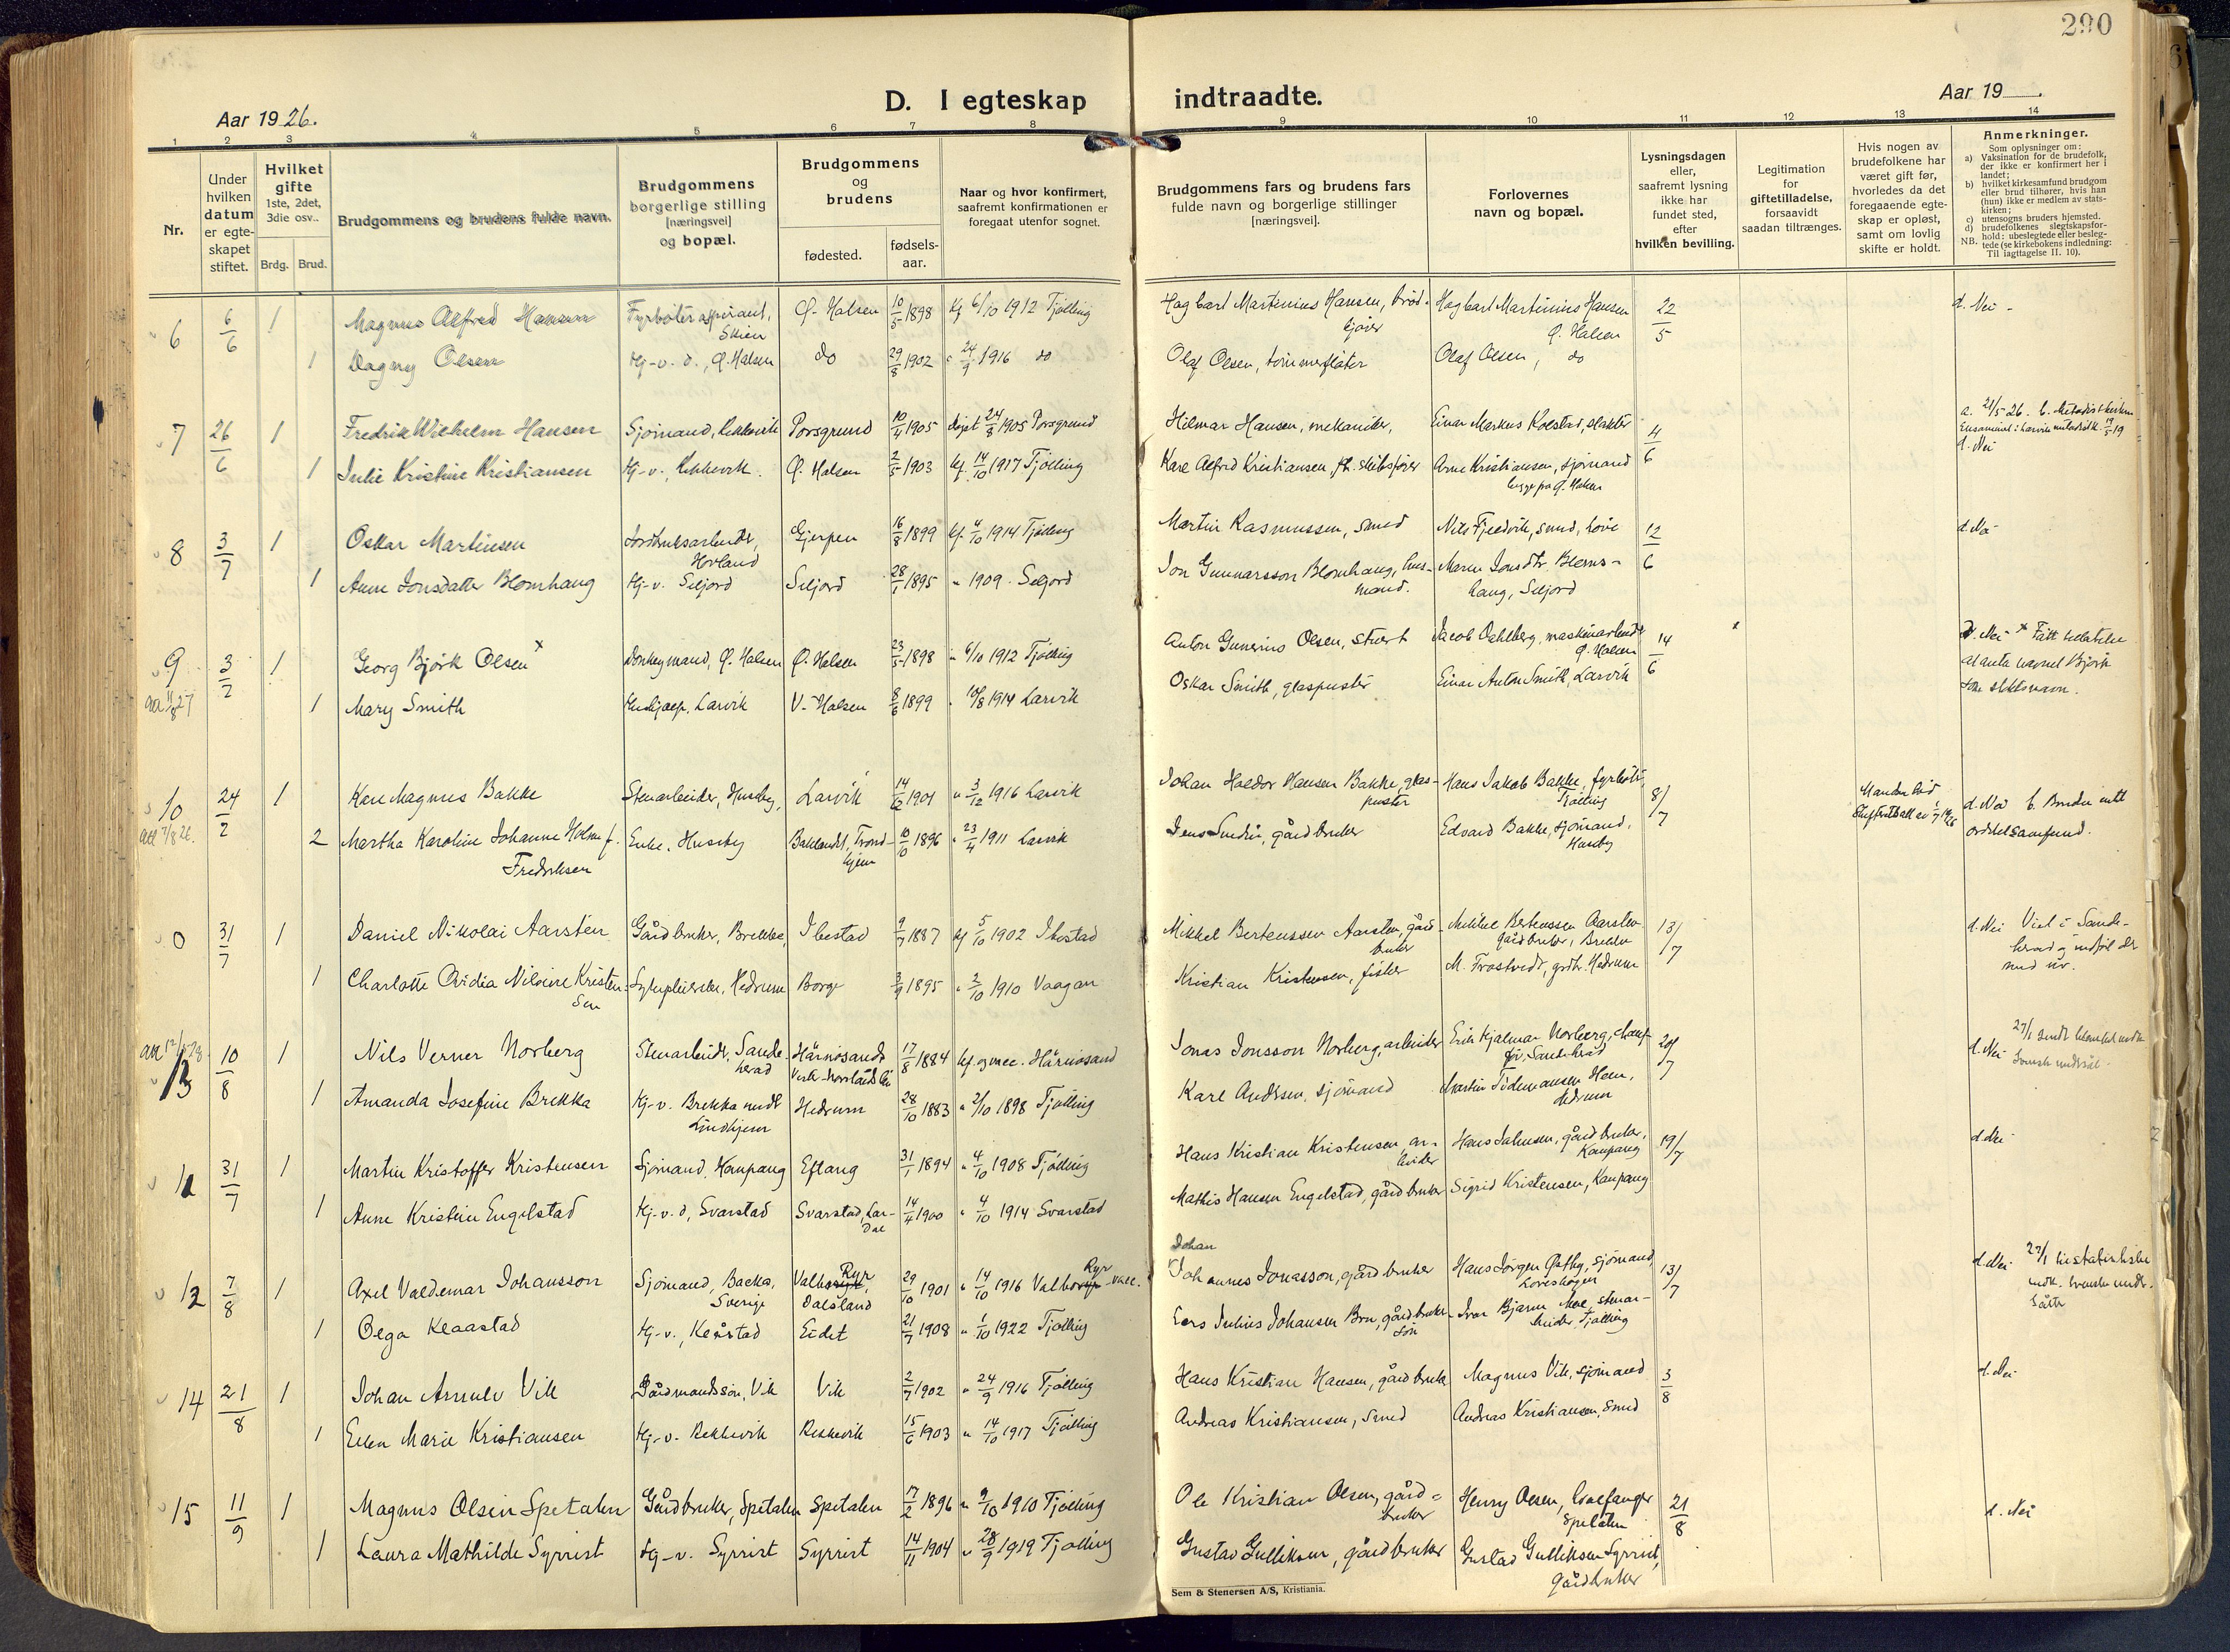 290
Aar 1926.
D. I egteskap indtraadte.
Aar 19
1 2 3 4 5 6 7 8 9 10 11 12 13 14
Nr.
Under hvilken datum er egteskapet stiftet.
Hvilket gifte 1ste, 2det, 3die osv..
Brdg. Brud.
Brudgommens og brudens fulde navn.
Brudgommens borgerlige stilling [næringsvei] og bopæl.
Brudgommens og brudens
fødested.
fødsels-aar.
Naar og hvor konfirmert, saafremt konfirmationen er foregaat utenfor sognet.
Brudgommens fars og brudens fars fulde navn og borgerlige stillinger [næringsvei].
Forlovernes navn og bopæl.
Lysningsdagen eller, saafremt lysning ikke har fundet sted, efter hvilken bevilling.
Legitimation for giftetilladelse, forsaavidt saadan tiltrænges.
Hvis nogen av brudefolkene har været gift før, hvorledes da det foregaaende egteskap er opløst, samt om lovlig skifte er holdt.
Anmerkninger.
Som oplysninger om:
a) Vaksination for de brudefolk, der ikke er konfirmert her i landet;
b) hvilket kirkesamfund brudgom eller brud tilhører, hvis han (hun) ikke er medlem av statskirken;
c) utensogns bruders hjemsted.
d) brudefolkenes slegtskapsforhold: ubeslegtede eller beslegtede (se kirkebokens indledning:
NB. Til iagttagelse II. 10).
6 6/6 1 Magnus Alfred Hansen Fyrbøteraspirant, Skien Ø. Halsen 10/5 1898 Kf 6/10 1912 Tjølling Hagbart Martinius Hansen, Hagbart Martinius Hansen Ø. Halsen 22/5 d. Nei
1 Dagny Olsen Hj-v. d., Ø. Halsen do 29/8 1902 " 24/9 1916 do Olaf Olsen, tømmerfløter Olaf Olsen, do
7 26/6 1 Fredrik Wilhelm Hansen Sjømand, Rekkevik Porsgrund 10/4 1905 døpt 24/8 1905 Porsgrund Hilmar Hansen, mekaniker, Einar Markus Kolstad, slakter 4/6 a. 21/5 26. b. Metodistkirken
d. Nei
1 Julie Kristine Kristiansen Hj-v., Rekkevik. Ø. Halsen 2/5 1903 kf. 14/10 1917 Tjølling Karl Alfred Kristiansen, skibsfører Arne Kristiansen, sjømand Ø. Halsen
8 3/7 1 Oskar Martinsen Jordbruksarbeider, Hovland Gjerpen 16/8 1899 kf. 4/10 1914 Tjølling Martin Rasmussen, smed Nils Fjeldvik, smed, 12/6
1 Anne Jonsdatter Blomhaug Hj-v. Seljord Seljord 28/1 1895 " 1909. Seljord Jon Gunnarsson Blomhaug, husmand. Maren Jonsdtr. Blomhaug, Seljord
9 3/7 1 Georg Bjørk Olsen x Donkeymand, Ø. Halsen Ø. Halsen 23/5 1898 " 6/10 1912 Tjølling Anton Gunerius Olsen, stuert Jacob Dahlberg, maskinarbeider Ø. Halsen 14/6 d. Nei x Fått tillatelse
1 Mary Smith Hushjælp, Larvik V-Halsen 8/6 1899 " 1914 Larvik Oskar Smith, glaspuster Einar Anton Smith, Larvik at anta navnet Bjørk som slektsnavn.
10 24/7 1 Karl Magnus Bakke Stenarbeider, Huseby, Larvik 14/12 1901 " 3/12 1916 Larvik Johan Haldor Hansen Bakke, glaspuster Hans Jakob Bakke, fyrbøter, Tjølling 8/7 Manden død
2 Martha Karoline Johanne Holm f. Fredriksen Enke, Huseby Baklandet, Trondhjem 10/10 1896 " 23/4 1911 Larvik gårdbruker Edvard Bakke, sjømand, Huseby
0 31/7 1 Daniel Nikolai Aarsten Gårdbruker, Brekke, Ibestad 9/7 1887 kf 5/10 1902 Ibestad Mikkel Bertenssen Aarsten, gårdbruker Mikkel Bertenssen Aarsten gårdbruker, 13/7 d. Nei Viet i Sandeherad
1 Charlotte Ovidia Nilsine Kristensen Sykepleierske, Hedrum Borge 3/9 1895 " 2/10 1910 Vaagan Kristian Kristensen, fisker M. Trostvedt, grdbr. Hedrum
13 10/8 1 Nils Verner Norberg Stenarbeider, Sandeherad Härnösand 17/8 1884 kf. Härnösand Jonas Jonsson Norberg, arbeider Erik Hjalmar Norberg, Sandeherad 20/7 d. Nei
1 Amanda Josefine Brekka Hj-v. Brekka Hedrum 28/10 1883 " 2/10 1898 Tjølling Karl Andersen, sjømand Martin Tidemansen Hem, Hedrum
11 31/7 1 Martin Kristoffer Kristensen Sjømand, Kaupang Eftang 31/1 1894 " 4/10 1908 Tjølling Hans Kristian Kristensen arbeider Hans Johnsen, gårdbruker, Kaupang 19/7 d. Nei
1 Anne Kristine Engelstad Hj-v. d, Svarstad Svarstad, Lardal 14/4 1900 " 4/10 1914 Svarstad Mathis Hansen Engelstad, gårdbruker Sigrid Kristensen, Kaupang
12 7/8 1 Axel Valdemar Johansson Sjømand, Backa, Sverige Valbo Ryr, Dalsland 29/10 1901 " 14/10 1916 Valbo Ryr Johan Johannes Jonasson, gårdbruker Hans Jørgen sjømand 13/7 d. Nei
1 Olga Klaastad Hj-v., Klåstad Eidet 21/9 1908 " 1/10 1922 Tjølling Lars Julius Johansen Bru, gårdbrukersøn Ivar Bjarne Moe, stenarbeider, Tjølling
14 21/8 1 Johan Arnulv Vik Gårdmandssøn, Vik Vik 2/7 1902 " 24/9 1916 Tjølling Hans Kristian Hansen, gårdbruker Magnus Vik, sjømand 3/8 d. Nei
1 Ellen Marie Kristiansen Hj-v. Rekkevik Rekkevik 15/6 1903 " 14/10 1917 Tjølling Andreas Kristiansen, smed Andreas Kristiansen, smed
15 11/9 1 Magnus Olsen Spetalen Gårdbruker, Spetalen Spetalen 17/2 1896 " 9/10 1910 Tjølling Ole Kristian Olsen, gårdbruker Henry Olsen, hvalfanger Spetalen 21/8 d. Nei
1 Laura Mathilde Syrrist Hj-v. Syrrist Syrrist 14/11 1904 " 28/9 1919 Tjølling Gustad Gulliksen, gårdbruker Gustad Gulliksen Syrrist, gårdbruker
Sem & Stenersen A/S, Kristiania.